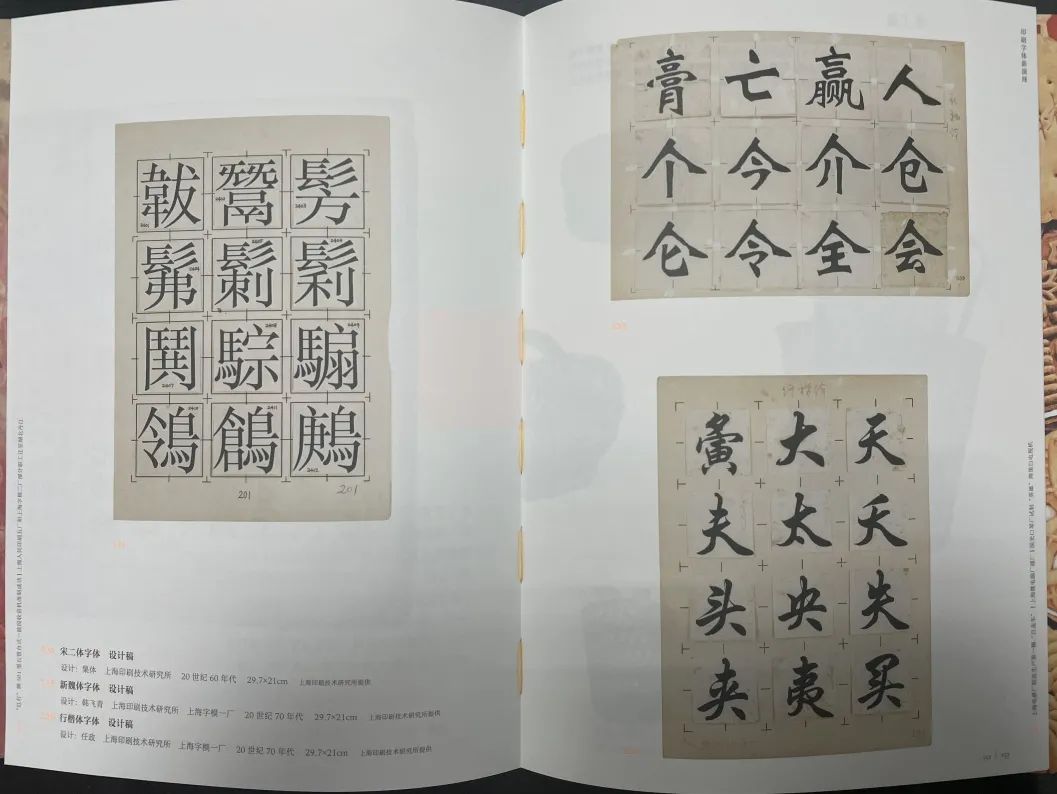 韍鬵髣
髴鬎鬁
鬨騌騸
鴒鶬鷓
201
201
宋二体字体 设计稿
设计：集体 上海印刷技术研究所 20世纪60年代 29.7×21cm 上海印刷技术研究所提供
新魏体字体 设计稿
设计：韩飞青 上海印刷技术研究所 上海字模一厂 20世纪70年代 29.7×21cm 上海印刷技术研究所提供
行楷体字体 设计稿
设计：任政 上海印刷技术研究所 上海字模一厂 20世纪70年代 29.7×21cm 上海印刷技术研究所提供
印刷字体新演绎
膏亡赢人
个今介仓
仑令全会
行楷体
夤大天
夫太夭
头央失
夹夷买